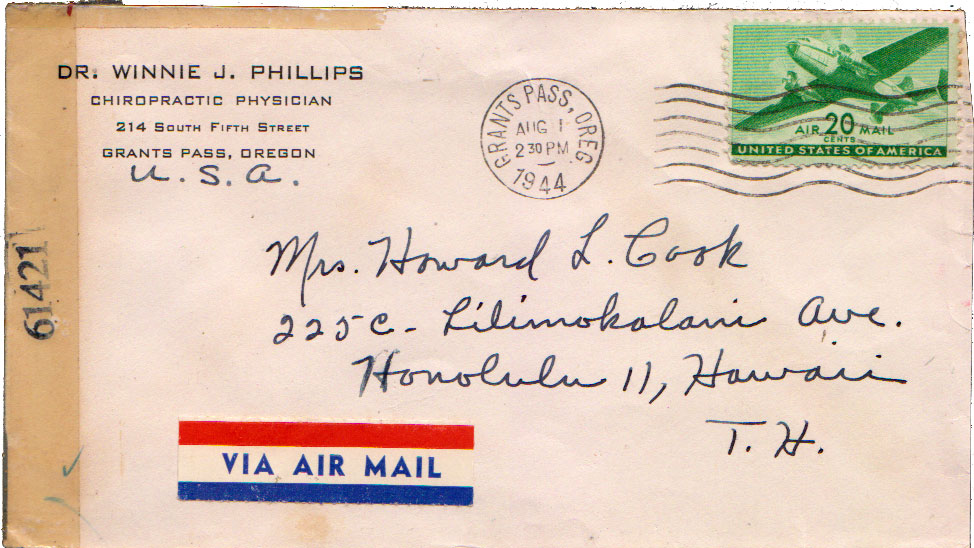 DR. WINNIE J. PHILLIPS
CHIROPRACTIC PHYSICIAN
214 SOUTH FIFTH STREET
GRANTS PASS, OREGON
U.S.A.
GRANTS PASS, OREG
AUG 1
2 30 PM
1944
AIR 20 MAIL
CENTS
UNITED STATES OF AMERICA
61421
Mrs. Howard L. Cook
225C - Lilimokalani Ave.
Honolulu 11, Hawaii
T. H.
VIA AIR MAIL